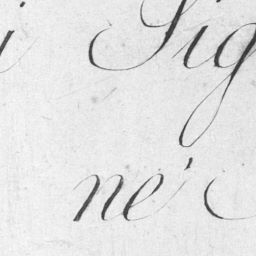 i Sig
ne'